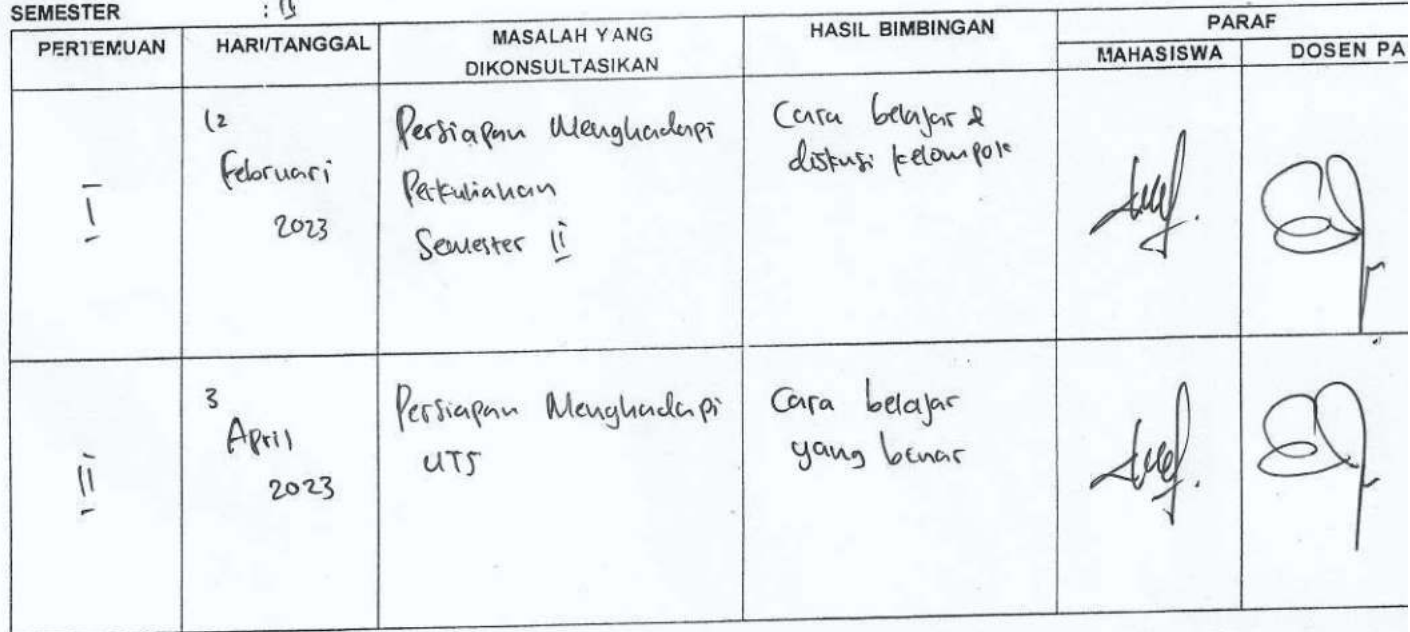 SEMESTER : II
PERTEMUAN HARI/TANGGAL MASALAH YANG DIKONSULTASIKAN HASIL BIMBINGAN PARAF
MAHASISWA DOSEN PA
I
12
Februari
2023
Persiapan Menghadapi
Perkuliahan
Semester II
Cara belajar &
diskusi kelompok
II
3
April
2023
Persiapan Menghadapi
UTS
Cara belajar
yang benar